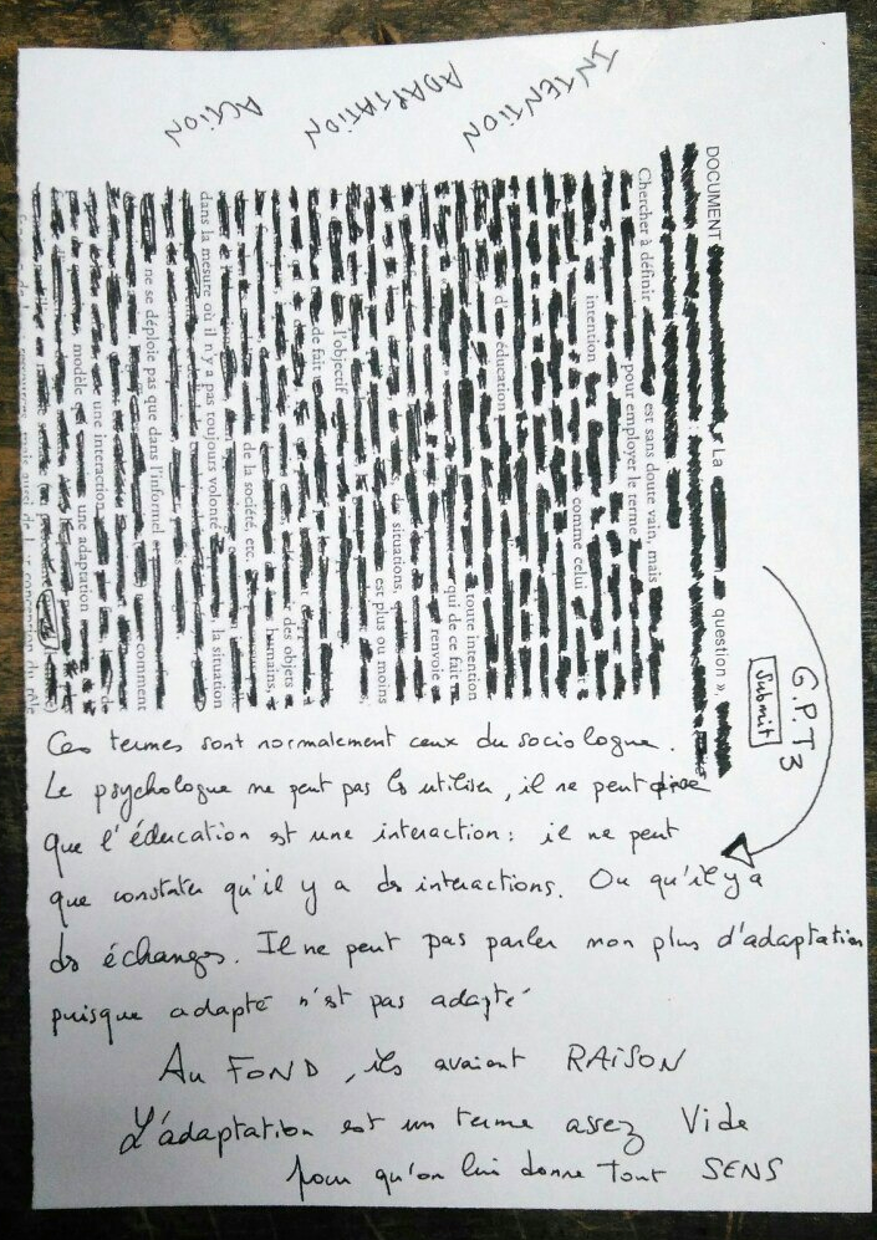 INTENTION
ADAPTATION
ACTION
DOCUMENT La question »,
Chercher à définir est sans doute vain, mais
pour employer le terme
intention comme celui
d' éducation toute intention
qui de ce fait
renvoie
des situations,
est plus ou moins
l'objectif
de fait
des objets
humains,
de la société, etc.
la situation
dans la mesure où il n'y a pas toujours volonté
ne se déploie pas que dans l'informel
comment
une interaction
modèle une adaptation
G.P.T 3
Submit
Ces termes sont normalement ceux du sociologue.
Le psychologue ne peut pas les utiliser, il ne peut dire
que l'éducation est une interaction : il ne peut
que constater qu'il y a des interactions. Ou qu'il y a
des échanges. Il ne peut pas parler non plus d'adaptation
puisque adapté n'est pas adapté
Au FOND, ils avaient RAISON
L'adaptation est un terme assez Vide
pour qu'on lui donne Tout SENS